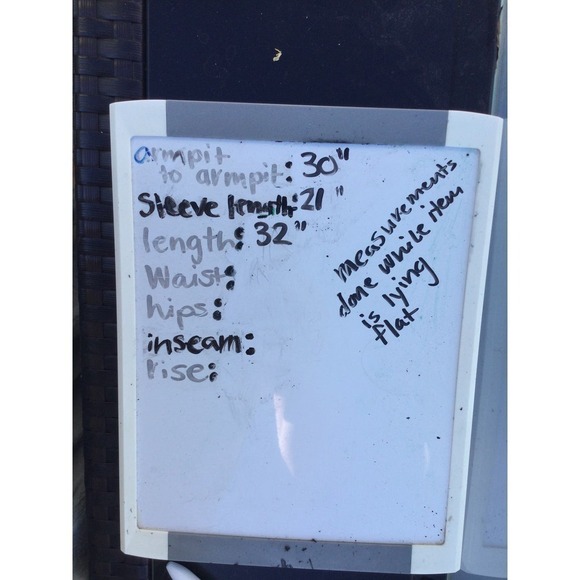 armpit
to armpit: 30"
Sleeve length: 21"
length: 32"
Waist:
hips:
inseam:
rise:
measurements
done while item
is lying
flat